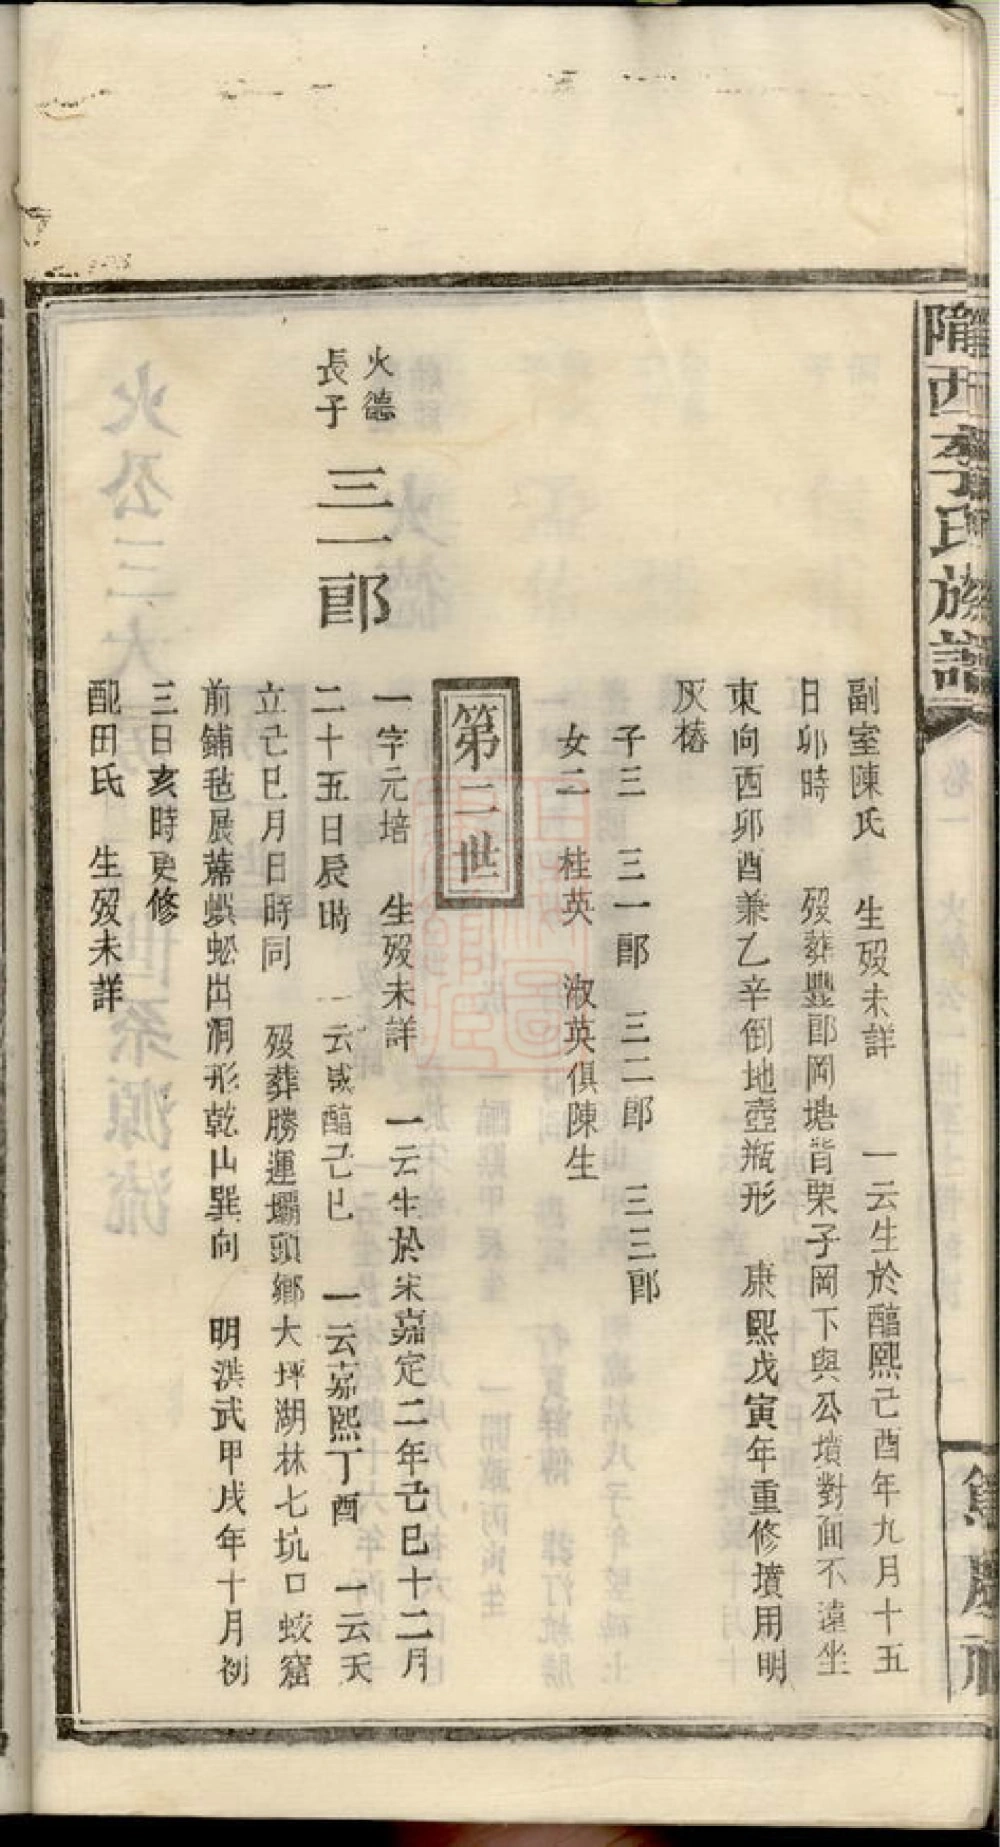 隴西李氏族譜
副室陳氏 生歿未詳 一云生於醕熙己酉年九月十五
日卯時 歿葬豐郎岡塘背柴子岡下與公墳對面不遠坐
東向西卯酉兼乙辛倒地壺瓶形 康熙戊寅年重修墳用明
灰樁
子三 三一郎 三二郎 三三郎
女二 桂英 淑英俱陳生
第二世
火德
長子
三一郎
一字元培 生歿未詳 一云生於宋嘉定二年己巳十二月
二十五日辰時 一云咸醕己巳 一云嘉熙丁酉 一云天
立己巳月日時同 歿葬勝運壩頭鄉大坪湖林七坑口蛟窟
前鋪毡展蓆蜈蚣出洞形乾山巽向 明洪武甲戌年十月初
三日亥時更修
配田氏 生歿未詳